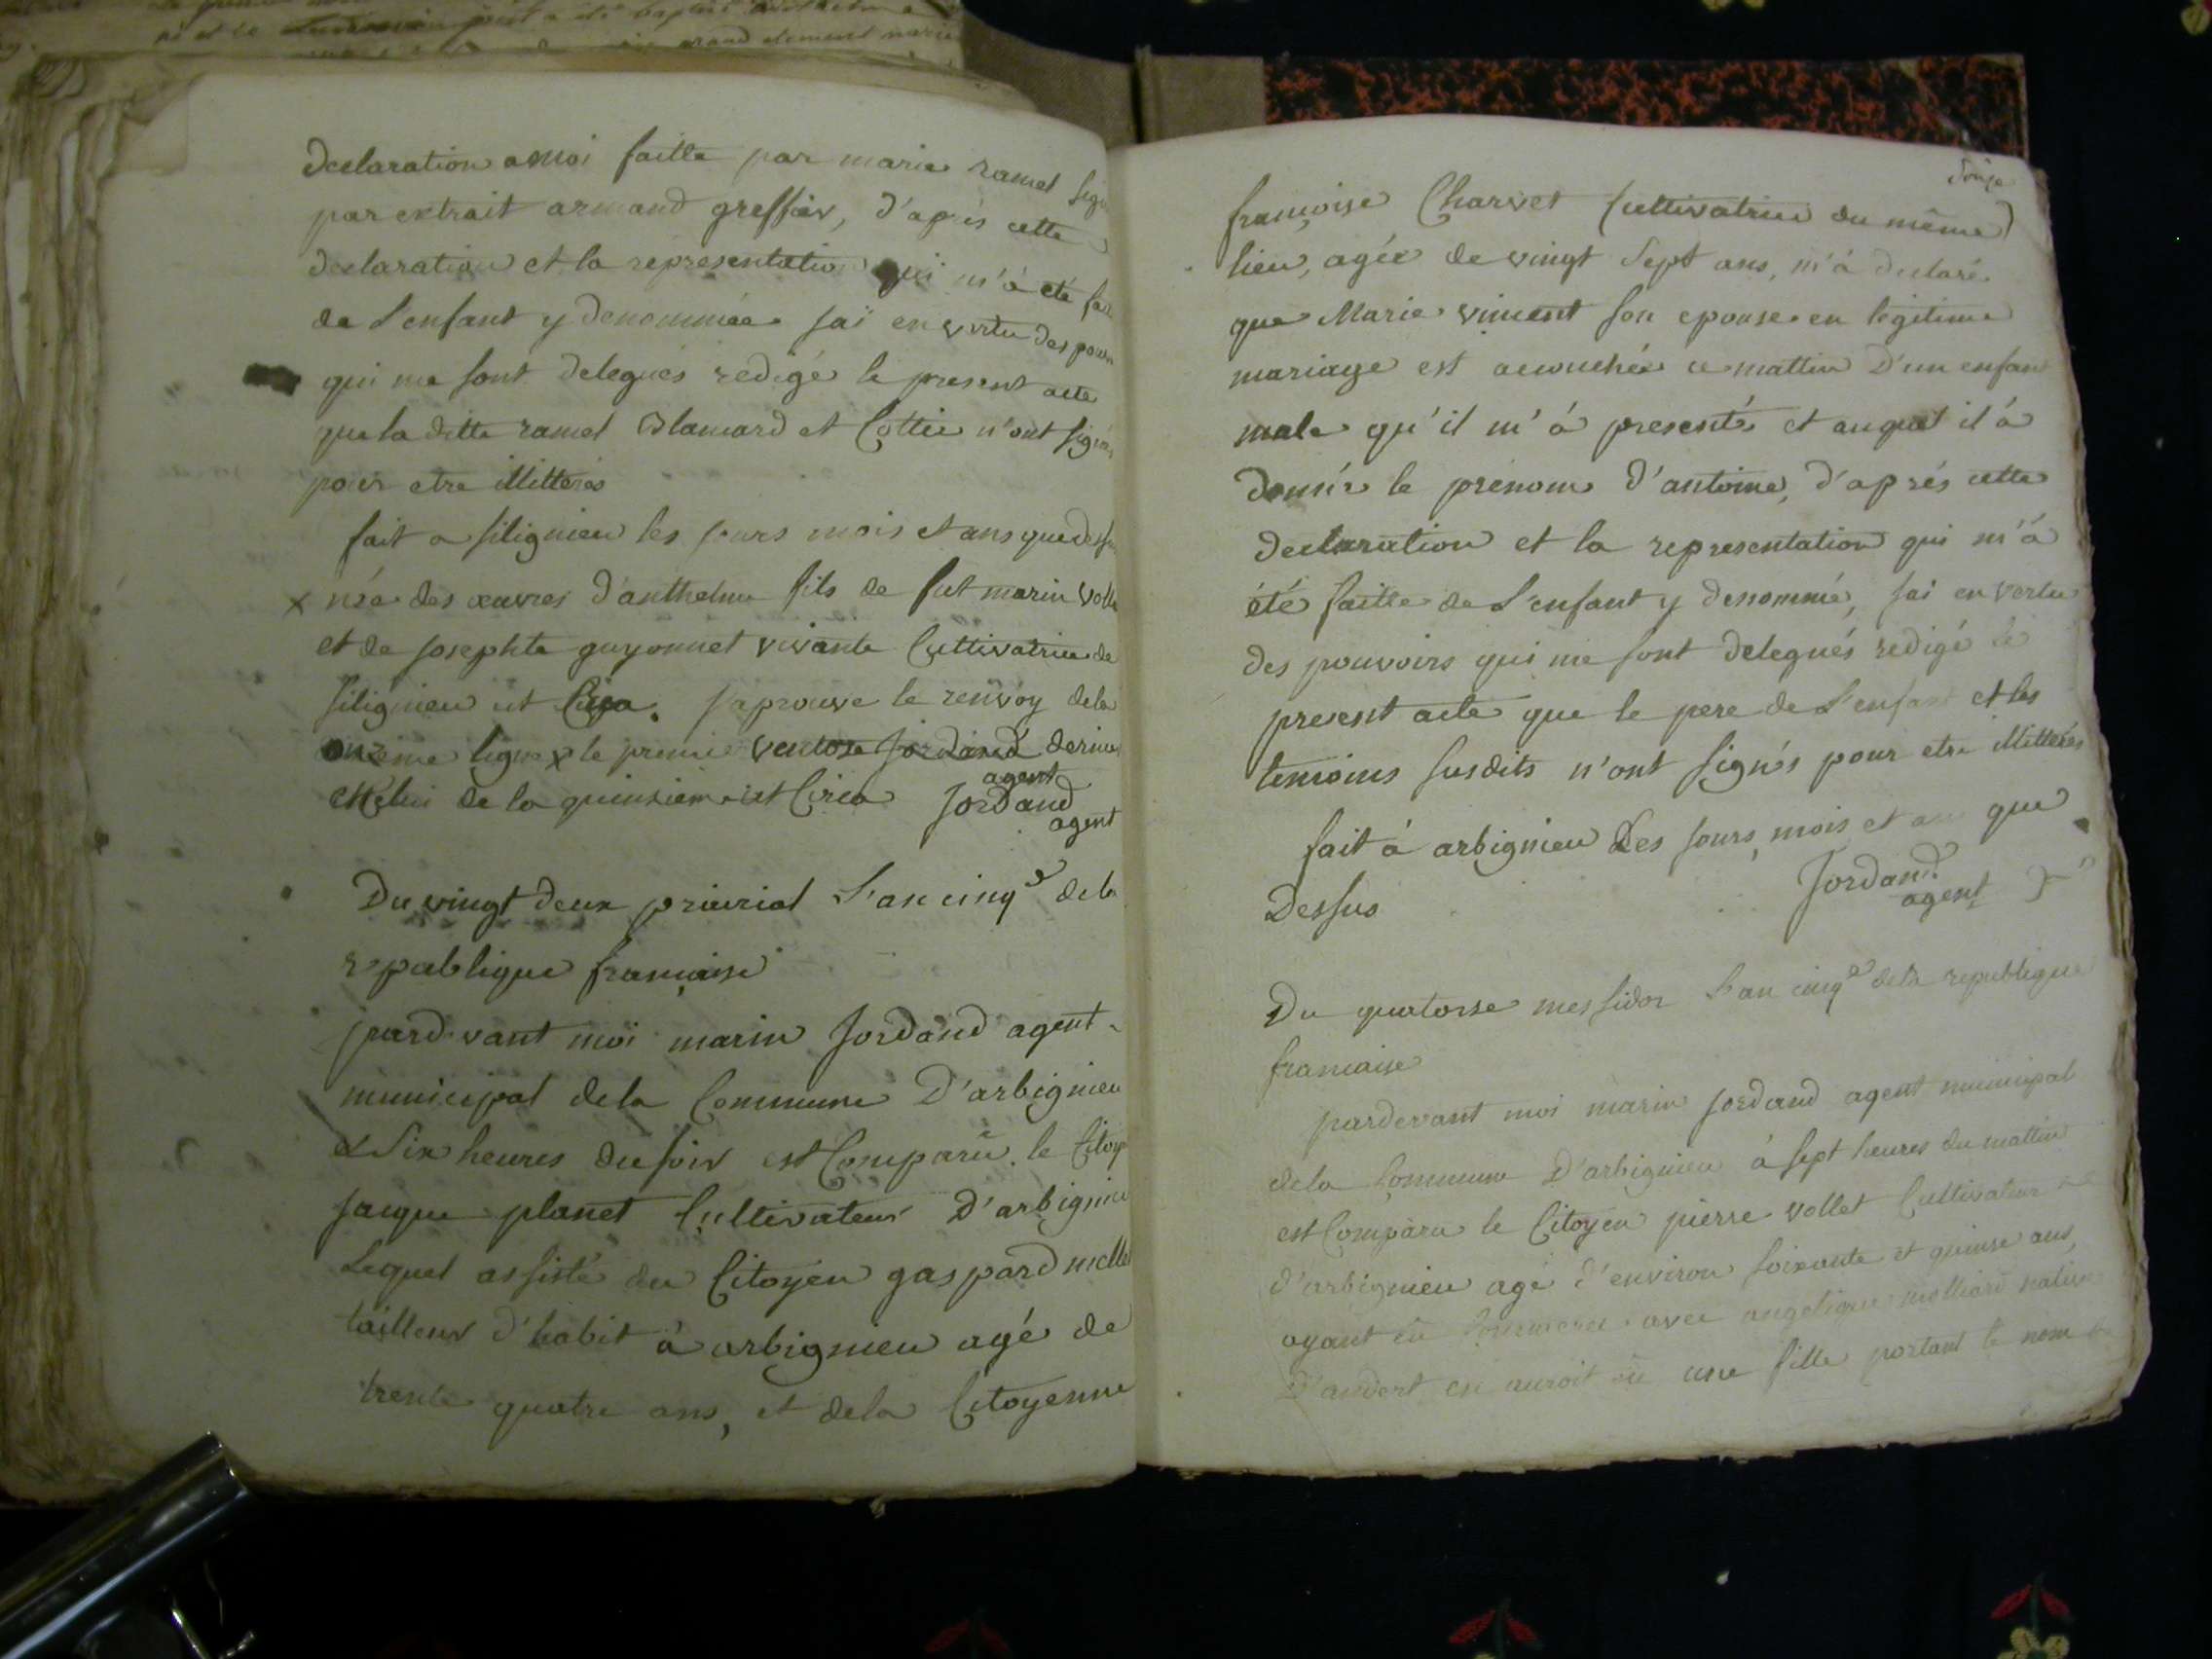 declaration a moi faitte par marie ramel
par extrait armand greffier, d'apès cette
declaration et la representation qui m'à eté
de l'enfant y denommée jai en vertu des
qui me sont delegués redigé le present acte
que la ditte ramel Blancard et Cottie n'ont signés
pour etre illitterés
fait a silignieu les jours mois et ans que dessus
x née des œuvres d'anthelme fils de fut marin
et de josephte guyonnet vivante Cultivatrice de
silignieu ut j'aprouve le renvoy dela
onzieme ligne x le premie ventose Jordand
agent
et celui de la quinsieme ut Circa Jordand
agent
Du vingt deux prairial L'an cinq^e dela
republique francaise
pardevant moi marin Jordand agent
municipal dela Commune D'arbignieu
à Six heures du soir est Comparû le
jacque planet Cultivateur D'arbignieu
Lequel assisté du Citoyen gaspard
tailleur d'habit à arbignieu agé de
trente quatre ans, et dela Citoyenne
françoise Charvet Cultivatrice du même
lieu, agée de vingt Sept ans, m'à declaré
que Marie vincent son epouse en legitime
mariage est acouchée ce mattin D'un enfant
male qu'il m'à presentés et auquel il à
donnér le prenom d'antoine, d'aprés cette
declaration et la representation qui m'à
été faitte de L'enfant y denommé, jai en vertu
des pouvoirs qui me sont delegués redigé le
present acte que le pere de L'enfant et les
temoins susdits n'ont signés pour etre illitterés
fait à arbignieu Les jours, mois et an que
Dessus
Jordand
agent
Du quatorse messidor L'an cinq^e dela republique
francaise
pardevant moi marin jordand agent municipal
dela Commune D'arbignieu à sept heures du mattin
est Comparu le Citoyen pierre vollet Cultivateur
d'arbignieu agé d'environ soixante et quinse ans,
ayant eû avec angelique molliard native
D'andert en auroit eû une fille portant le nom